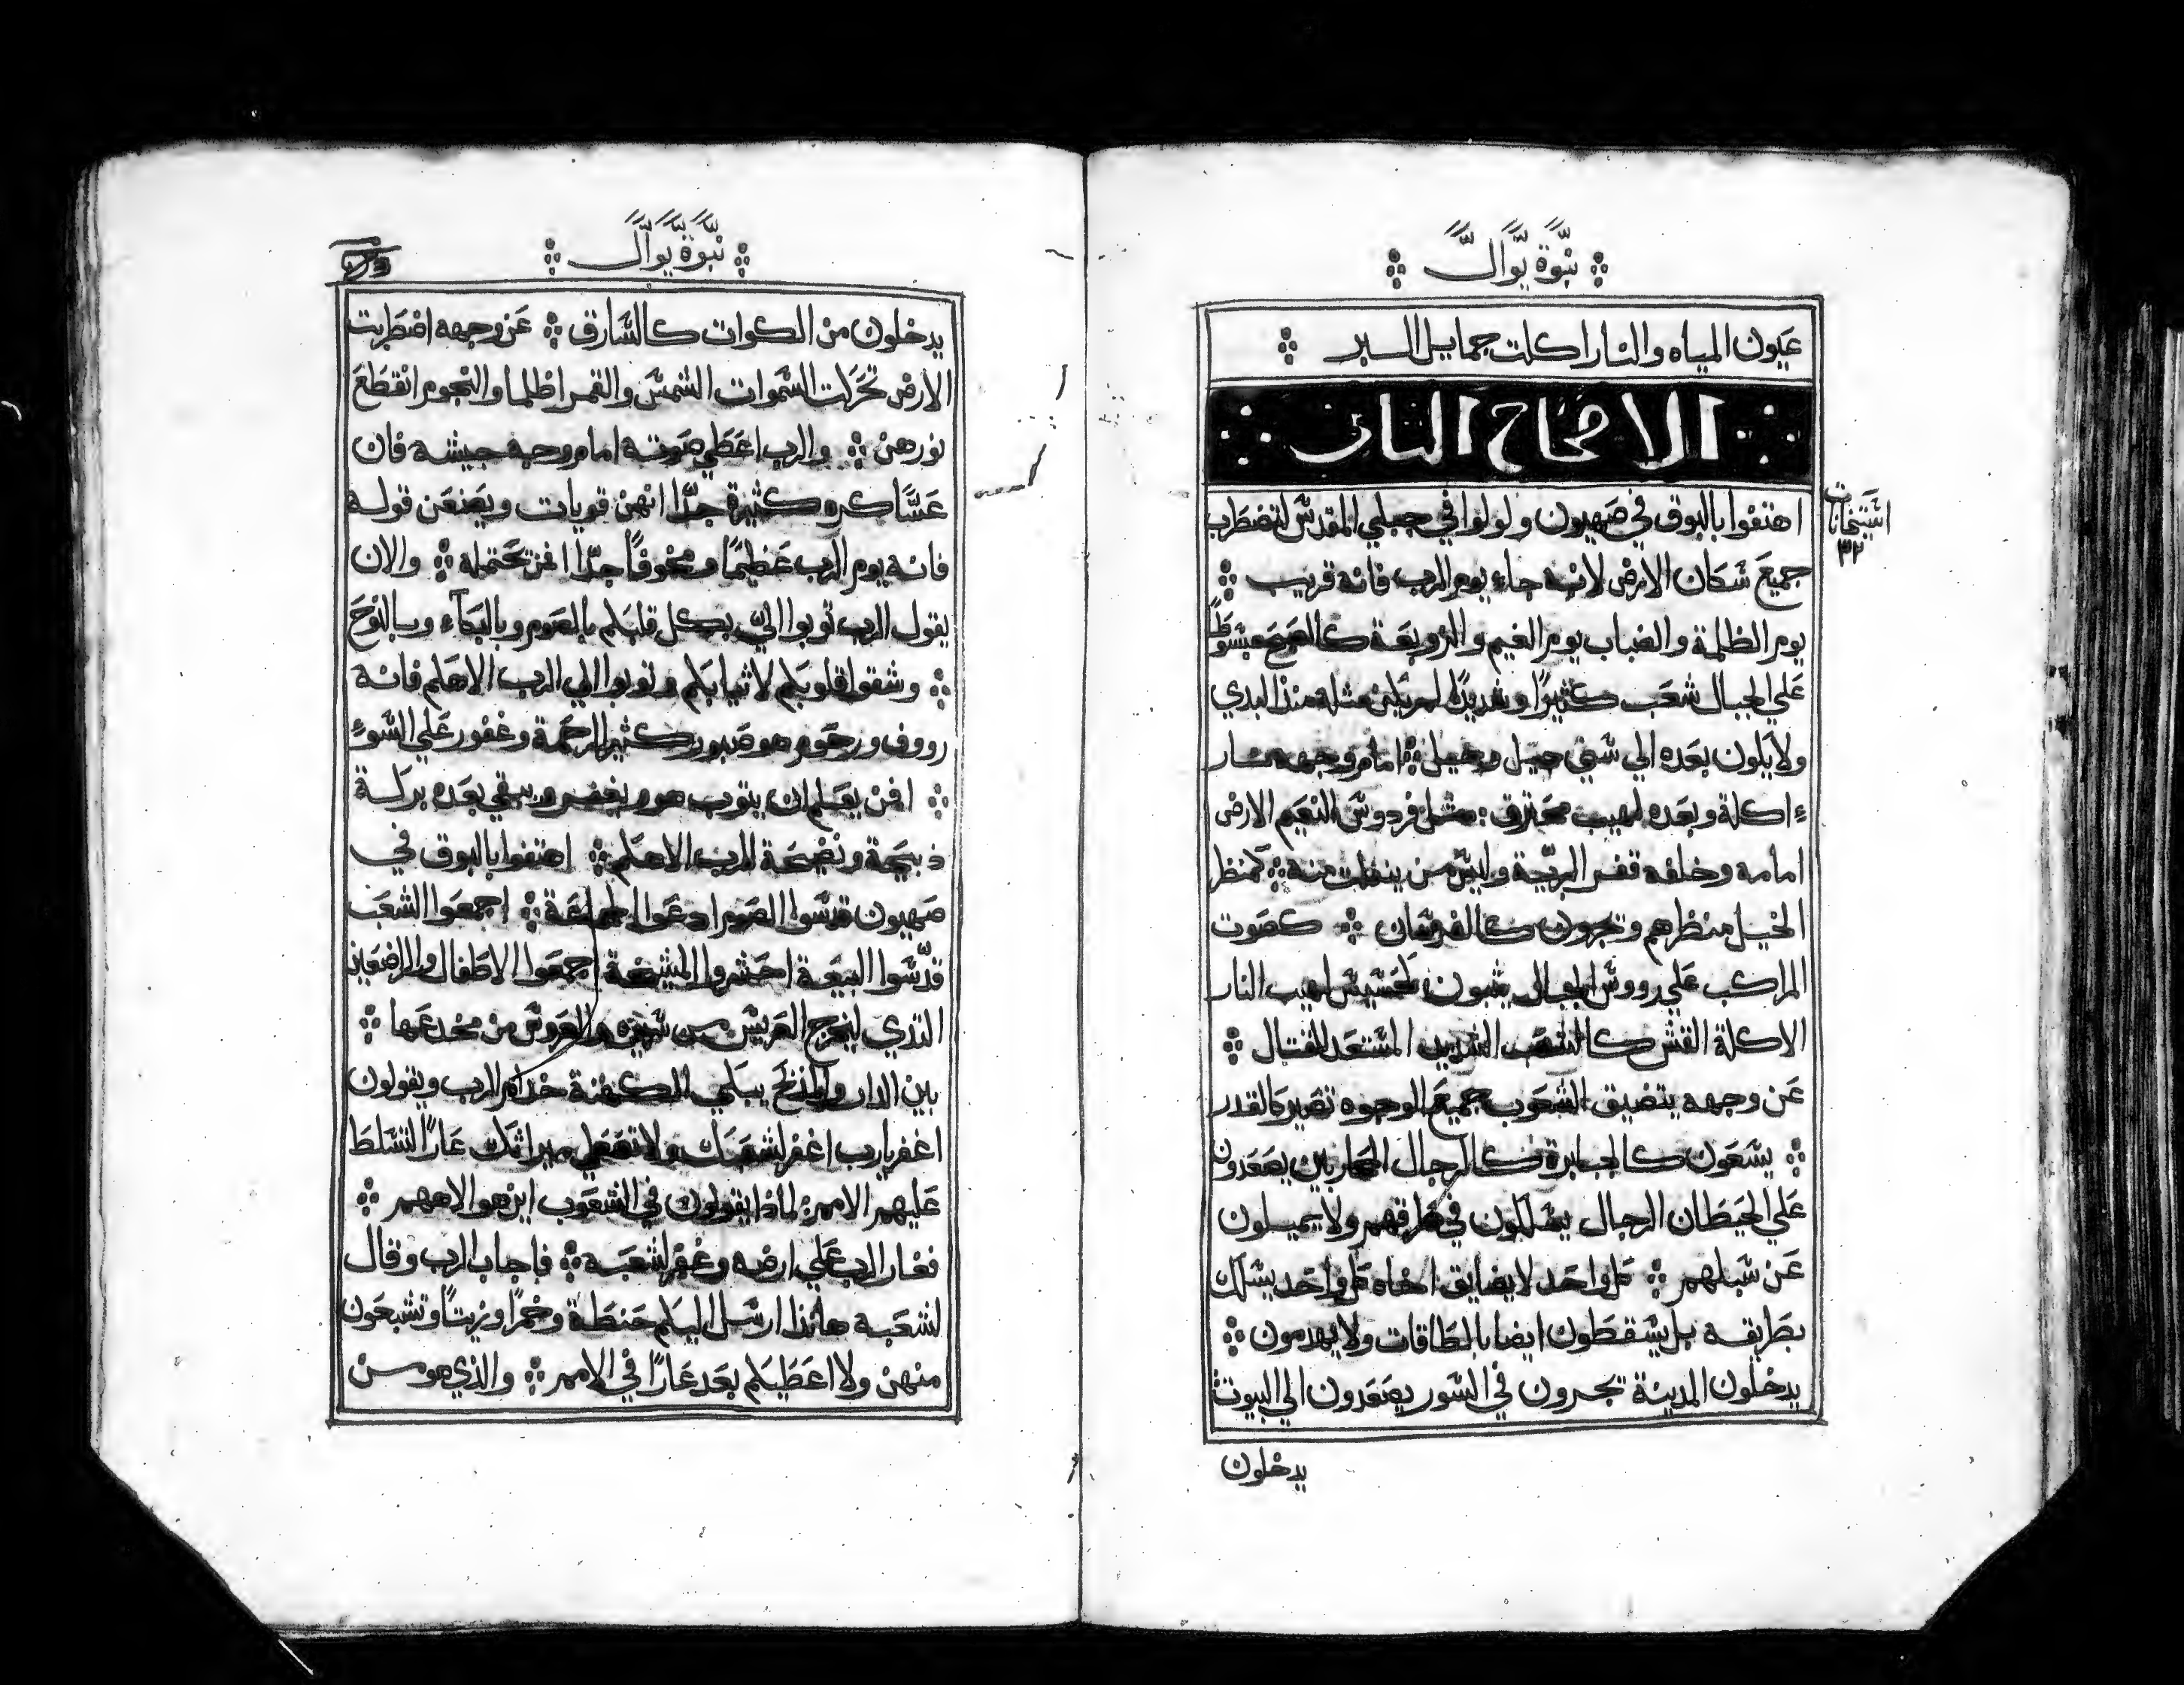 نبوة يوال
عيون المياه والنار اكلت جمايل البر
الاصحاح الثاني
استيخانات
٣٢
اهتفوا بالبوق في صهيون ولولوا في جبلي المقدس لتضطرب
جميع سكان الارض لانه جاء يوم الرب فانه قريب
يوم الظلمة والضباب يوم الغيم والزوبعة كالصبح مبسوط
علي الجبال شعب كثيرًا وشديدًا لم يكن مثله منذ البدي
ولا يكون بعده الي سني جيل وجيل امام وجهه نار
ء اكلة وبعده لهيب محترق مثل فردوس النعيم الارض
امامه وخلفه قفر البريّة وليس من ينفلت منه كمنظر
الخيل منظرهم وتجرون كالفرسان كصوت
المراكب علي رووس الجبال يثبون كحسيس لهيب النار
الاكلة القش كالشعب الشديد المستعد للقتال
عن وجهه يتضيق الشعوب جميع الوجوه تصير كالقدر
يسعون كالجبابرة كالرجال المحاربين يصعدون
علي الحيطان الرجال يسلكون في طرقهم ولا يميلون
عن سبلهم كل واحد لا يضايق اخاه كل واحد يسلك
بطريقه بل يسقطون ايضا بالطاقات ولا يهدمون
يدخلون المدينة تجرون في السور يصعدون الي البيوت
يدخلون
نبوة يوال
يدخلون من الكوات كالسارق عن وجهه اضطربت
الارض تحركت السموات الشمس والقمر اظلما والنجوم انقطع
نورهن والرب اعطي صوته امام وجه جيشه فان
عساكره كثيرة جدًّا انهن قويات ويصنعن قوله
فانه يوم الرب عظيمًا ومخوفًا جدًّا افمن يحتمله والان
يقول الرب توبوا اليّ بكل قلبكم بالصوم وبالبكآء وبالنوح
وشقوا قلوبكم لا ثيابكم وتوبوا الي الرب الاهكم فانه
رووف ورحوم هو صبور كثير الرحمة وغفور علي السوء
افمن يعلم ان يتوب هو ويغفر ويبقي بعده بركة
ذبيحة ونضيحة للرب الاهكم اهتفوا بالبوق في
صهيون قدسوا الصوم ادعوا الجماعة اجمعوا الشعب
قدّسوا البيعة احشروا المشيخة اجمعوا الاطفال والراضعين
الثدي ليخرج العريس من سريره والعروس من مخدعها
بين الدار والمذبح يبكي الكهنة خدام الرب ويقولون
اغفر يارب اغفر لشعبك ولا تعطي ميراثك عارًا لتسلط
عليهم الامم لماذا يقولون في الشعوب اين هو الاههم
فغار الرب علي ارضه وغفر لشعبه فاجاب الرب وقال
لشعبه هانذا ارسل اليكم حنطة وخمرًا وزيتًا وتشبعون
منهن ولا اعطيكم بعد عارًا في الامم والذي هو من